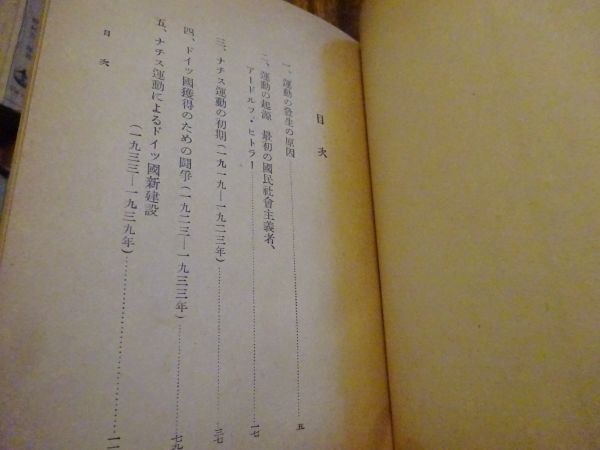 目次
一、運動の發生の原因…………五
二、運動の起源 最初の國民社會主義者、
アードルフ・ヒトラー…………一七
三、ナチス運動の初期(一九一九—一九二三年)…………三七
四、ドイツ國獲得のための鬪爭(一九二三—一九三三年)…………七九
五、ナチス運動によるドイツ國新建設
(一九三三—一九三九年)…………一一
目次